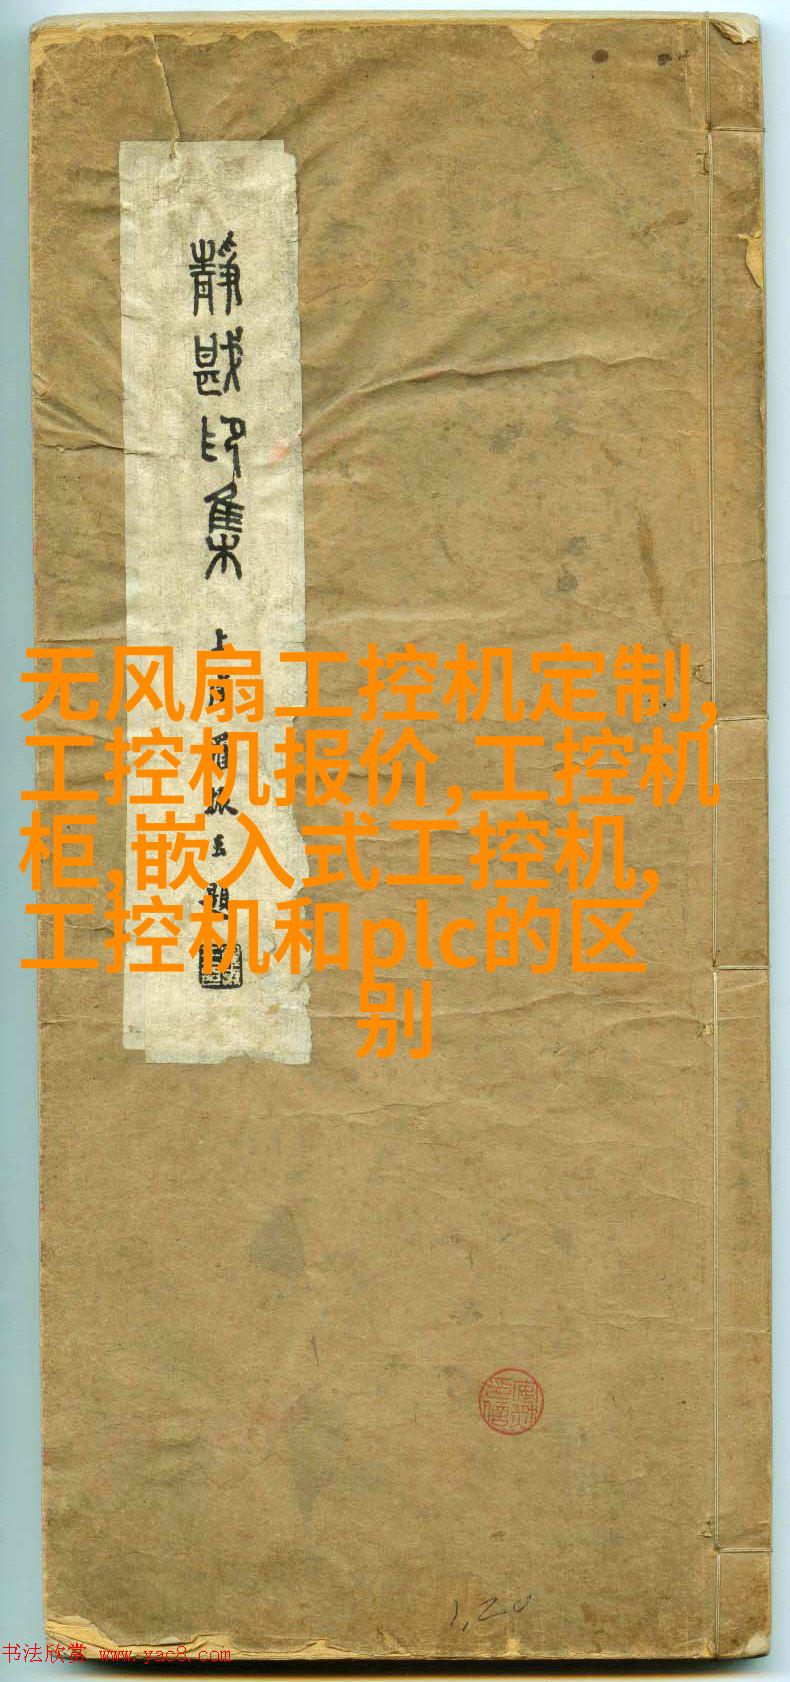 静戡印集
无风扇工控机定制,
工控机报价,工控机
柜,嵌入式工控机,
工控机和plc的区
别
1,20
书法欣赏 www.yac8.com